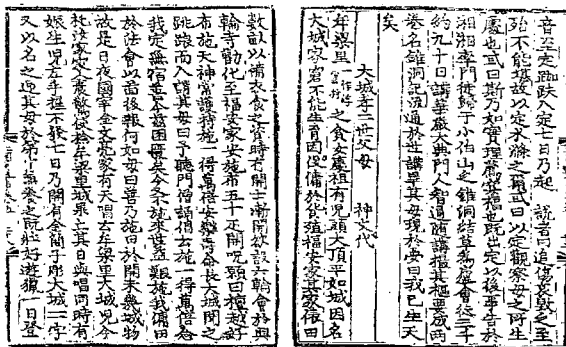 音至定跏趺入定七日乃起說者曰追傷哀毀之至
殆不能堪故以定水滌之爾或曰以定觀察母之所生
處也或曰斯乃如實理薦冥福也旣出定以後事告於
湘湘率門徒歸于小伯山之錐洞結草爲廬會徒三千
約九十日講華嚴大典門人智通隨講撮其樞要成兩
卷名錐洞記流通於世講畢其母現於夢曰我已生天
矣
大城孝二世父母 神文代
牟梁里一作浮雲村之貧女慶祖有兒頭大頂平如城因名
大城家窘不能生育因役傭於貨殖福安家其家俵田
數畝以備衣食之資時有開士漸開欲設六輪會於興
輪寺勸化至福安家安施布五十疋開呪願曰檀越好
布施天神常護持施一得萬倍安樂壽命長大城聞之
跳踉而入謂其母曰予聽門僧誦倡云施一得萬倍念
我定無宿善今玆困匱矣今又不施來世益艱施我傭田
於法會以圖後報何如母曰善乃施田於開未幾城物
故是日夜國宰金文亮家有天唱云牟梁里大城兒今
托汝家家人震驚使檢牟梁里城果亡其日與唱同時有
娠生兒左手握不發七日乃開有金簡子彫大城二字
又以名之迎其母於第中兼養之旣壯好遊獵一日登